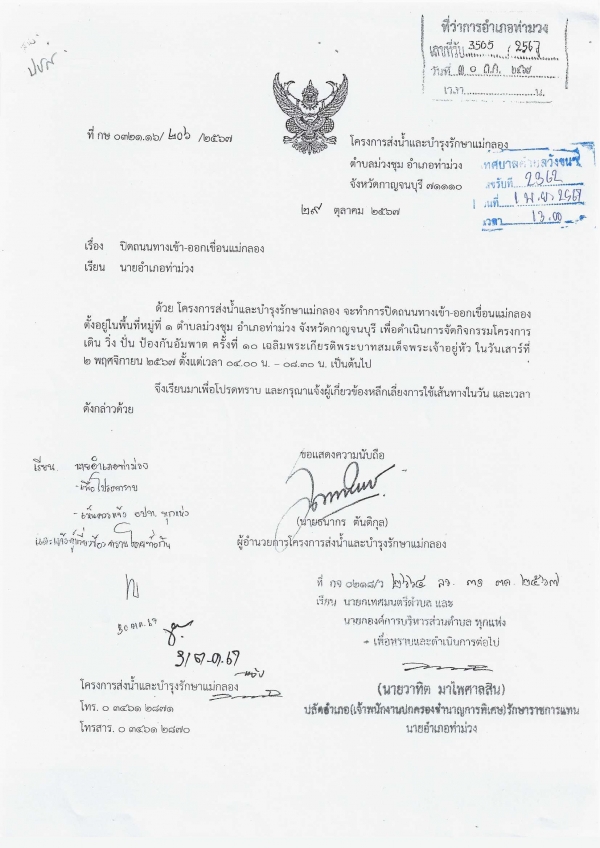 ปชส
ที่ว่าการอำเภอท่าม่วง
เลขที่รับ 3505 / 2567
วันที่ ๓๐ ต.ค. ๒๕๖๗
เวลา.....................น.
ที่ กษ ๐๓๒๑.๑๖/ ๒๐๖ /๒๕๖๗
โครงการส่งน้ำและบำรุงรักษาแม่กลอง
ตำบลม่วงชุม อำเภอท่าม่วง
จังหวัดกาญจนบุรี ๗๑๑๑๐
เทศบาลตำบลวังขนาย
เลขรับที่ 2362
วันที่ 1 พ.ย. 2567
เวลา 13.00
๒๙ ตุลาคม ๒๕๖๗
เรื่อง ปิดถนนทางเข้า-ออกเขื่อนแม่กลอง
เรียน นายอำเภอท่าม่วง
ด้วย โครงการส่งน้ำและบำรุงรักษาแม่กลอง จะทำการปิดถนนทางเข้า-ออกเขื่อนแม่กลอง
ตั้งอยู่ในพื้นที่หมู่ที่ ๑ ตำบลม่วงชุม อำเภอท่าม่วง จังหวัดกาญจนบุรี เพื่อดำเนินการจัดกิจกรรมโครงการ
เดิน วิ่ง ปั่น ป้องกันอัมพาต ครั้งที่ ๑๐ เฉลิมพระเกียรติพระบาทสมเด็จพระเจ้าอยู่หัว ในวันเสาร์ที่
๒ พฤศจิกายน ๒๕๖๗ ตั้งแต่เวลา ๐๔.๐๐ น. – ๐๘.๓๐ น. เป็นต้นไป
จึงเรียนมาเพื่อโปรดทราบ และกรุณาแจ้งผู้เกี่ยวข้องหลีกเลี่ยงการใช้เส้นทางในวัน และเวลา
ดังกล่าวด้วย
ขอแสดงความนับถือ
(นายธนากร ตันติกุล)
ผู้อำนวยการโครงการส่งน้ำและบำรุงรักษาแม่กลอง
เรียน นายอำเภอท่าม่วง
- เพื่อโปรดทราบ
- เห็นควรแจ้ง อปท. ทุกแห่ง
และแจ้งผู้เกี่ยวข้องทราบโดยทั่วกัน
๓๐ ต.ค. ๖๗
31 ต.ค. 67
ที่ กจ ๐๒๑๘/ว ๒๖๖๔ ลว. ๓๑ ตค. ๒๕๖๗
เรียน นายกเทศมนตรีตำบล และ
นายกองค์การบริหารส่วนตำบล ทุกแห่ง
- เพื่อทราบและดำเนินการต่อไป
(นายวาทิต มาไพศาลสิน)
ปลัดอำเภอ(เจ้าพนักงานปกครองชำนาญการพิเศษ)รักษาราชการแทน
นายอำเภอท่าม่วง
โครงการส่งน้ำและบำรุงรักษาแม่กลอง
โทร. ๐ ๓๔๖๑ ๒๘๗๑
โทรสาร. ๐ ๓๔๖๑ ๒๘๗๐